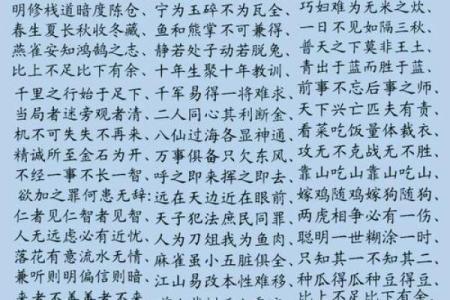 明修栈道暗度陈仓、
春生夏长秋收冬藏、
燕雀安知鸿鹄之志、
比上不足比下有余、
千里之行始于足下、
当局者迷旁观者清、
机不可失失不再来、
精诚所至金石为开、
不经一事不长一智、
欲加之罪何患无辞:
仁者见仁智者见智、
人无远虑必有近忧、
落花有意流水无情、
兼听则明偏信则暗、
来者不善善者不来
宁为玉碎不为瓦全、
鱼和熊掌不可兼得、
静若处子动若脱兔、
十年生聚十年教训、
千军易得一将难求、
二人同心其利断金、
八仙过海各显神通、
万事俱备只欠东风、
呼之即来挥之即去、
远在天边近在眼前、
天子犯法庶民同罪、
人为刀俎我为鱼肉、
麻雀虽小五脏俱全、
江山易改本性难移、
巧妇难为无米之炊、
一日不见如隔三秋、
普天之下莫非王土、
青出于蓝而胜于蓝、
前事不忘后事之师、
天下兴亡匹夫有责、
看菜吃饭量体裁衣、
攻无不克战无不胜、
靠山吃山靠山吃山、
嫁鸡随鸡嫁狗随狗、
两虎相争必有一伤、
聪明一世糊涂一时、
只知其一不知其二、
种瓜得瓜种豆得豆、
比上不足比下有余、